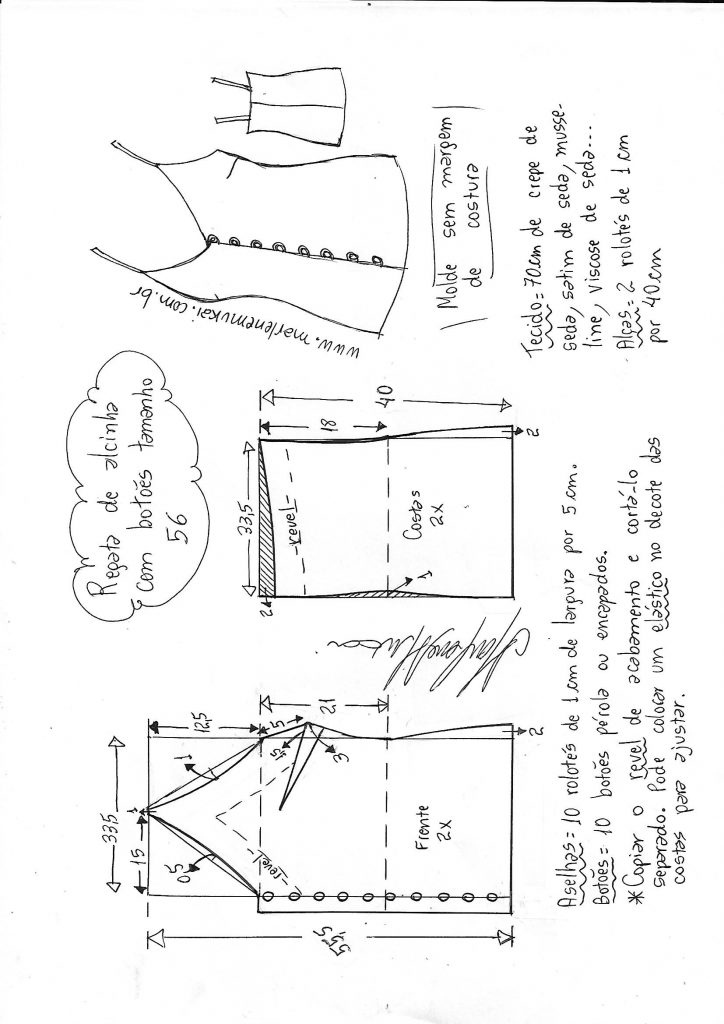 Regata de alcinha
com botões tamanho
56
www.marlenemukai.com.br
Molde sem margem
de costura
Tecido = 70cm de crepe de
seda, satim de seda, musse-
line, viscose de seda...
Alças = 2 rolotês de 1cm
por 40cm
33,5
15
1
12,5
5
1
0,5
1,5
3
21
revel
Frente
2x
2
55,5
33,5
2
18
40
revel
Costas
2x
1
2
Aselhas = 10 rolotés de 1cm de largura por 5cm.
Botões = 10 botões pérola ou encapados.
*Copiar o revel de acabamento e cortá-lo
separado. Pode colocar um elástico no decote das
costas para ajustar.